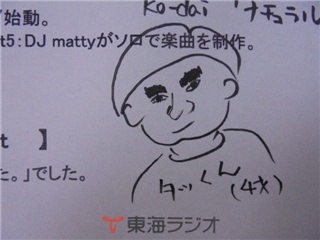 ko-dai ナチュラル
始動。
t5：DJ mattyがソロで楽曲を制作。
t 】
た。」でした。
タツくん
(4才)
東海ラジオ